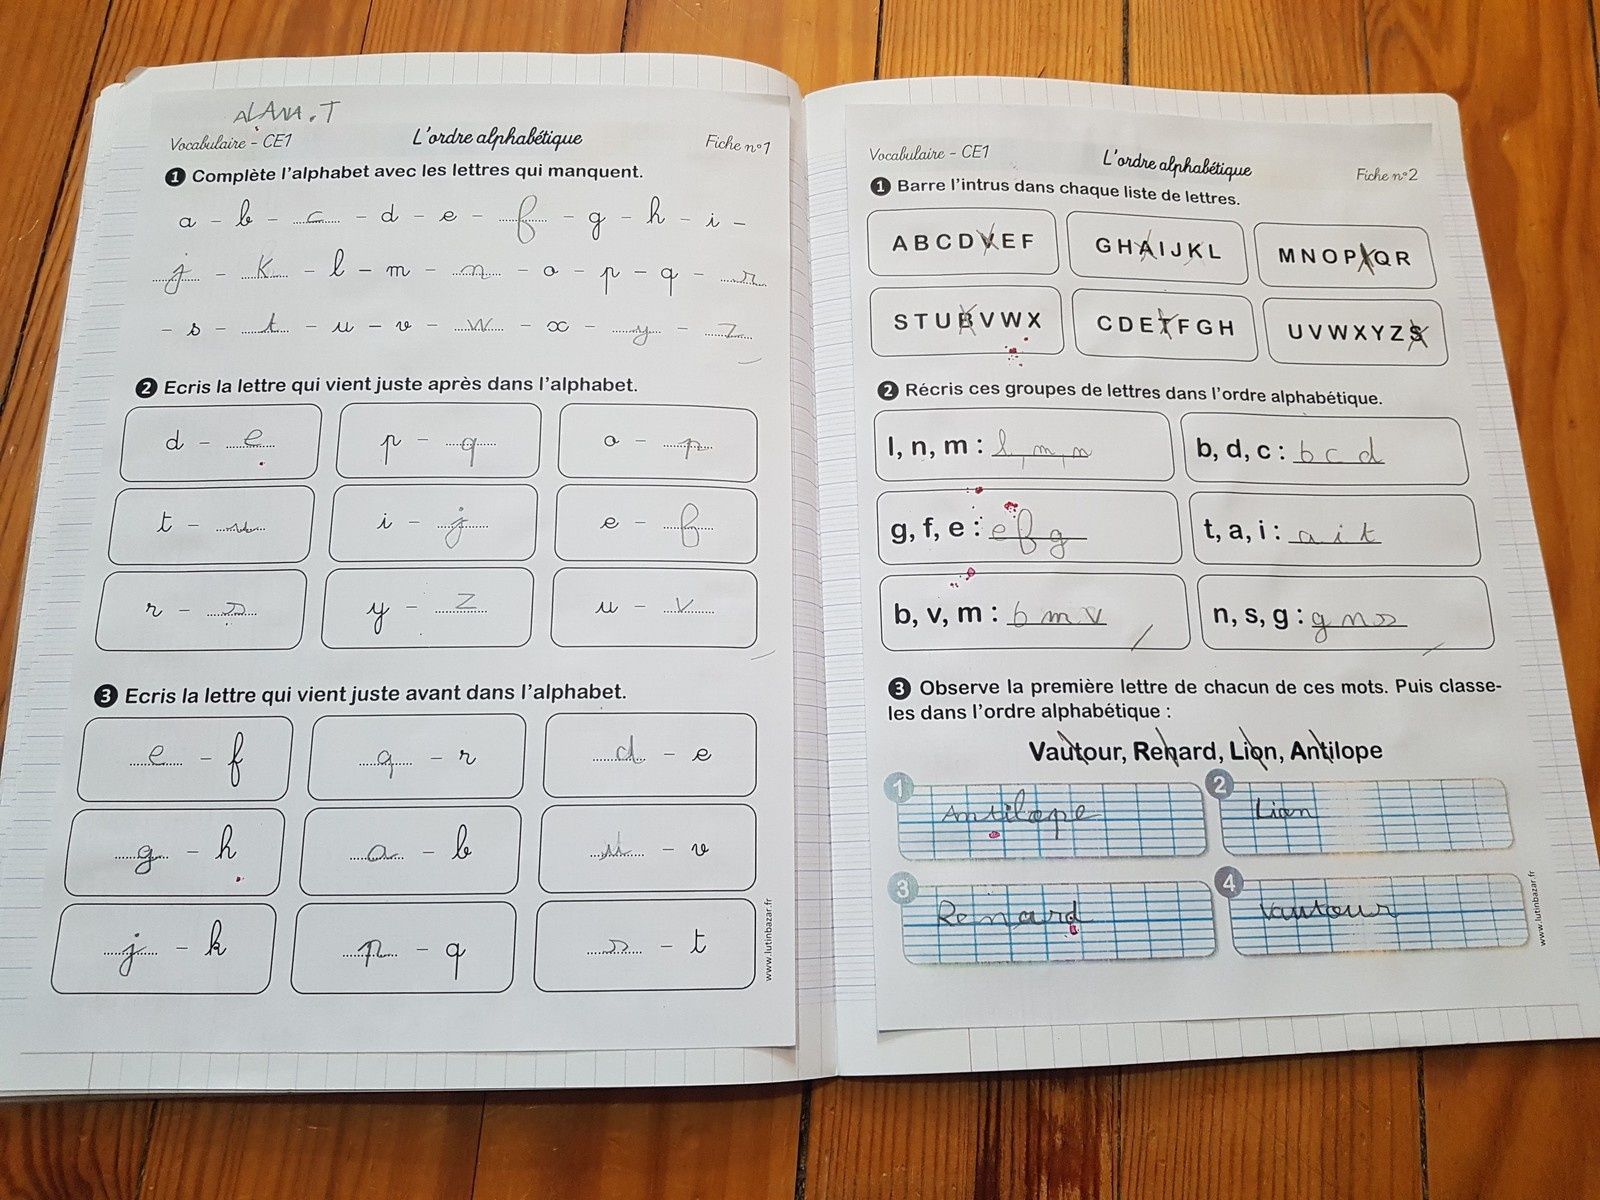 ALANA.T
Vocabulaire - CE1 L'ordre alphabétique Fiche n°1
1 Complète l'alphabet avec les lettres qui manquent.
a - b - c - d - e - f - g - h - i -
j - k - l - m - n - o - p - q - r
- s - t - u - v - w - x - y - z
2 Ecris la lettre qui vient juste après dans l'alphabet.
d - e p - q o - p
t - u i - j e - f
r - s y - z u - v
3 Ecris la lettre qui vient juste avant dans l'alphabet.
e - f q - r d - e
g - h a - b u - v
j - k p - q s - t
www.lutinbazar.fr
Vocabulaire - CE1 L'ordre alphabétique Fiche n°2
1 Barre l'intrus dans chaque liste de lettres.
A B C D V E F G H A I J K L M N O P A Q R
S T U B V W X C D E T F G H U V W X Y Z S
2 Récris ces groupes de lettres dans l'ordre alphabétique.
l, n, m : l, m, n b, d, c : b c d
g, f, e : e f g t, a, i : a i t
b, v, m : b m v n, s, g : g n s
3 Observe la première lettre de chacun de ces mots. Puis classe-
les dans l'ordre alphabétique :
Vautour, Renard, Lion, Antilope
1 Antilope 2 Lion
3 Renard 4 Vautour
www.lutinbazar.fr